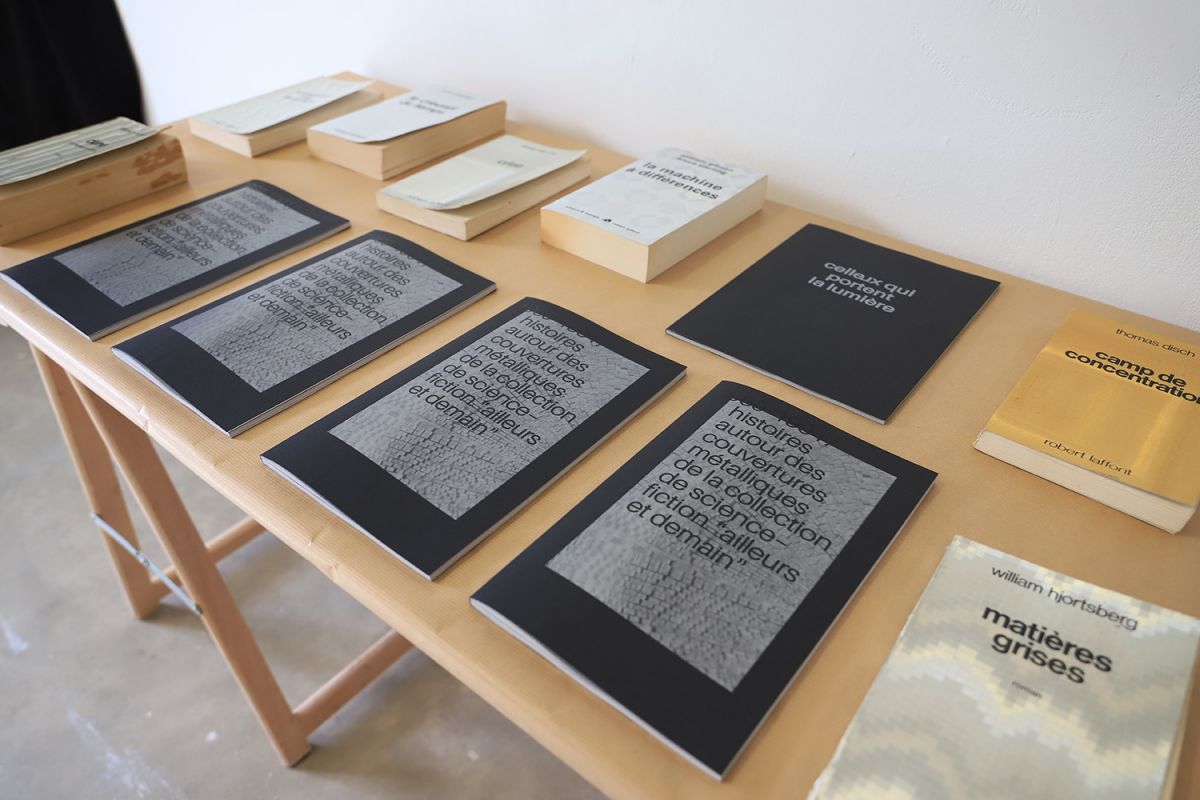 crise
la machine
à différences
celleux qui
portent
la lumière
thomas disch
camp de
concentration
robert laffont
william hjortsberg
matières
grises
roman
histoires
autour des
couvertures
métalliques
de la collection
de science-
fiction "ailleurs
et demain"
histoires
autour des
couvertures
métalliques
de la collection
de science-
fiction "ailleurs
et demain"
histoires
autour des
couvertures
métalliques
de la collection
de science-
fiction "ailleurs
et demain"
histoires
autour des
couvertures
métalliques
de la collection
de science-
fiction "ailleurs
et demain"